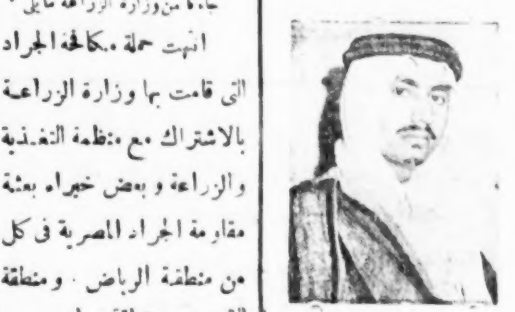 جاءنا من وزارة الزراعة مايلي :
انتهت حملة مكافحة الجراد
التى قامت بها وزارة الزراعـة
بالاشتراك مع منظمة التغـذية
والزراعة و بعض خبراء بعثة
مقاومة الجراد المصرية فى كل
من منطقة الرياض . ومنطقة